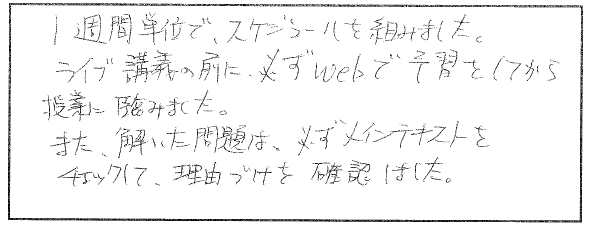 1週間単位で、スケジュールを組みました。
ライブ講義の前に、必ずwebで予習をしてから
授業に臨みました。
また、解いた問題は、必ずメインテキストを
チェックして、理由づけを確認しました。